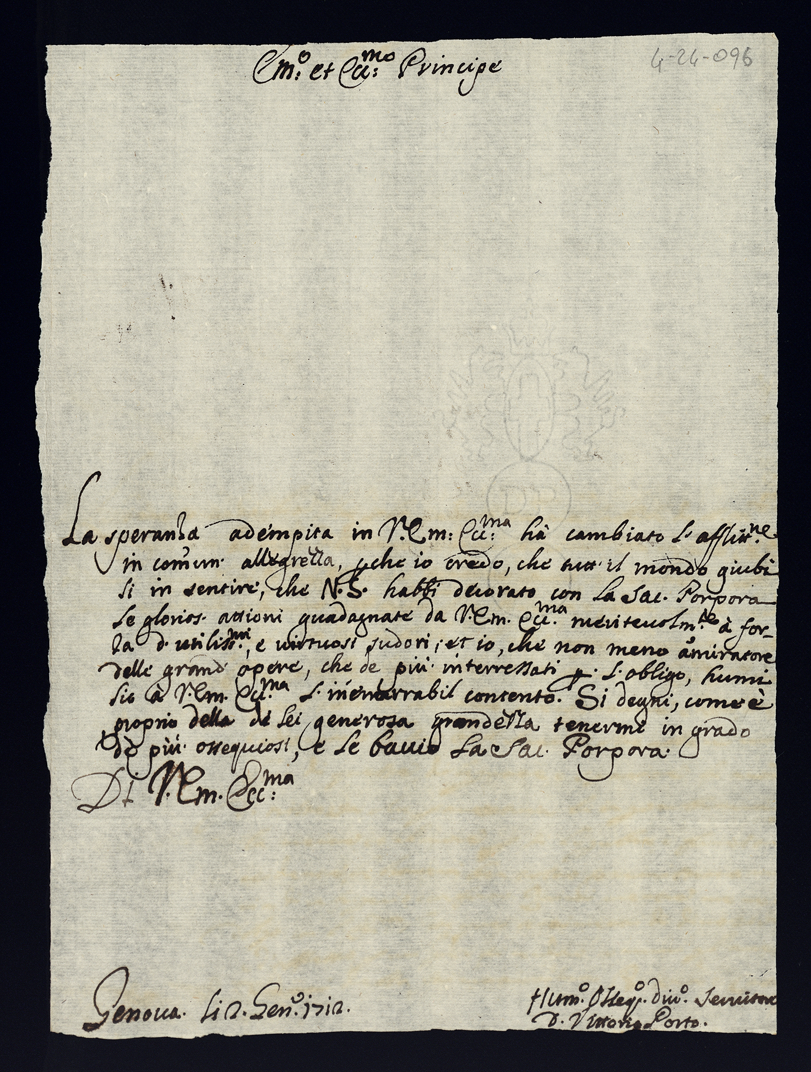 4-24-096
Em.o et Ecc:mo Principe
La speranza adempita in V. Em: Ecc:ma hà cambiato l'afflitt.ne
in comun' allegrezza, che io credo, che tutt' il mondo giubi
li in sentire, che N.S. habbi decorato con la Sac. Porpora
le glorios' attioni guadagnate da V. Em. Ecc:ma meritevolm.te à for-
za d' utiliss.mi, e virtuosi sudori; et io, che non meno amiratore
delle grand' opere, che de più interressati p. l'obligo, humi
lio à V. Em. Ecc:ma l'inenarrabil contento. Si degni, come è
proprio della de lei generosa grandezza tenermi in grado
de più ossequiosi, e le baccio la Sac. Porpora.
Di V. Em. Ecc:ma
Genova. li 2. Gen.o 1712.
Hum.o Osseq.o div.o Servitore
D. Vittorio Porto.